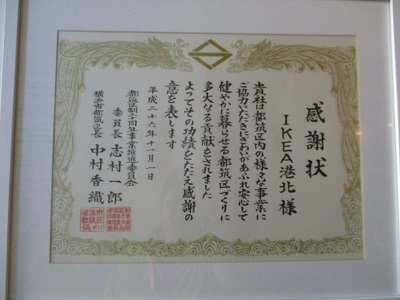 感謝状
IKEA港北様
貴社は都筑区内の様々な事業に
ご協力いただきにぎわいがあふれ安心して
健やかに暮らせる都筑区づくりに
多大なる貢献をされました
よってその功績をたたえ感謝の
意を表します
平成二十六年十一月一日
都筑区制二十周年事業推進委員会
委員長 志村一郎
横浜市都筑区長 中村香織